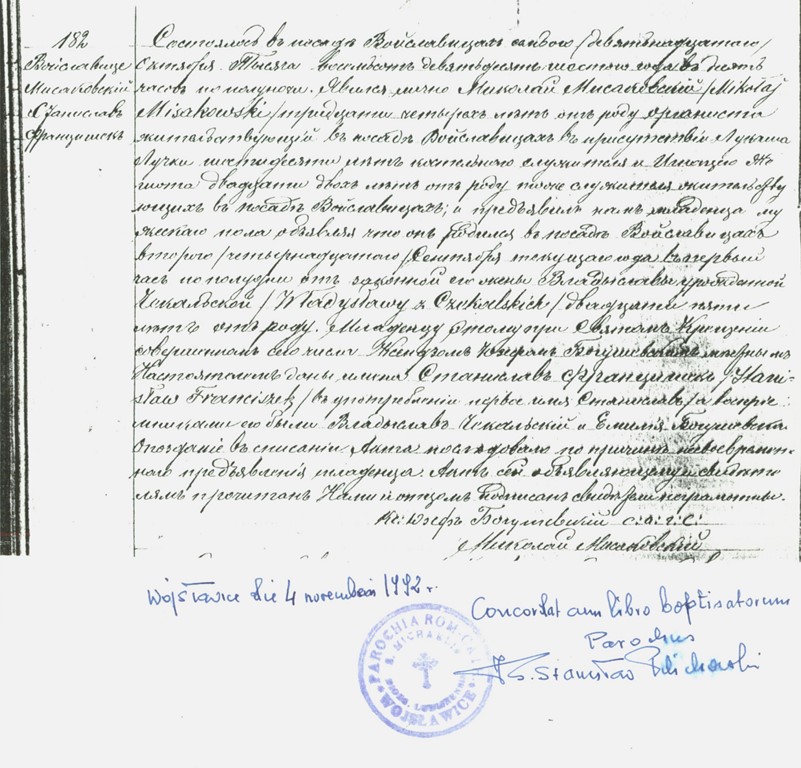 182
Войславице
Мисаковскій
Станиславъ
Францишекъ
Состоялось въ посадѣ Войславицахъ седьмаго /девятнадцатаго/
Октября Тысяча восемьсотъ девяносто года въ десять
часовъ по полуночи. Явился лично Николай Мисаковскій /Mikołaj
Misakowski/ тридцати четырехъ лѣтъ отъ роду органиста
жительствующій въ посадѣ Войславицахъ въ присутствіи Лукаша
Лучки шестидесяти лѣтъ костельнаго служителя и
двадцати двухъ лѣтъ отъ роду тоже служителя жительству
ющихъ въ посадѣ Войславицахъ; и предъявилъ намъ младенца му
жескаго пола объявляя что онъ родился въ посадѣ Войславицахъ
втораго /четырнадцатаго/ Сентября текущаго года въ первый
часъ по полудни отъ законной его жены Владыславы урожденной
Чекальской /Władysławy z Czekalskich/ двадцати пяти
лѣтъ отъ роду. Младенцу этому при Святомъ Крещеніи
совершенномъ сего числа Ксендзомъ Богушевскимъ
Настоятелемъ даны имена Станиславъ Францишекъ /Stani-
sław Franciszek/ въ употребленіи первое имя Станиславъ, а воспрі-
емниками его были Владыславъ Чекальскій и Емилія Богушевска
Опозданіе въ списаніи Акта послѣдовало по причинѣ несвоевремен-
наго предъявленія младенца. Актъ сей объявляющему и свидѣте
лямъ прочитанъ Нами и отцомъ подписанъ свидѣтели неграмотны.
Кс: Іозефъ Богушевскій с.а.г.с.
Николай Мисаковскій
Wojsławice die 4 novembri 1992 r.
Concordat cum libro baptisatorum
Parochus
Ks. Stanisław
PAROCHIA ROM. CATH.
S. MICHAELIS
DIOEC. LUBLINENSIS
WOJSŁAWICE